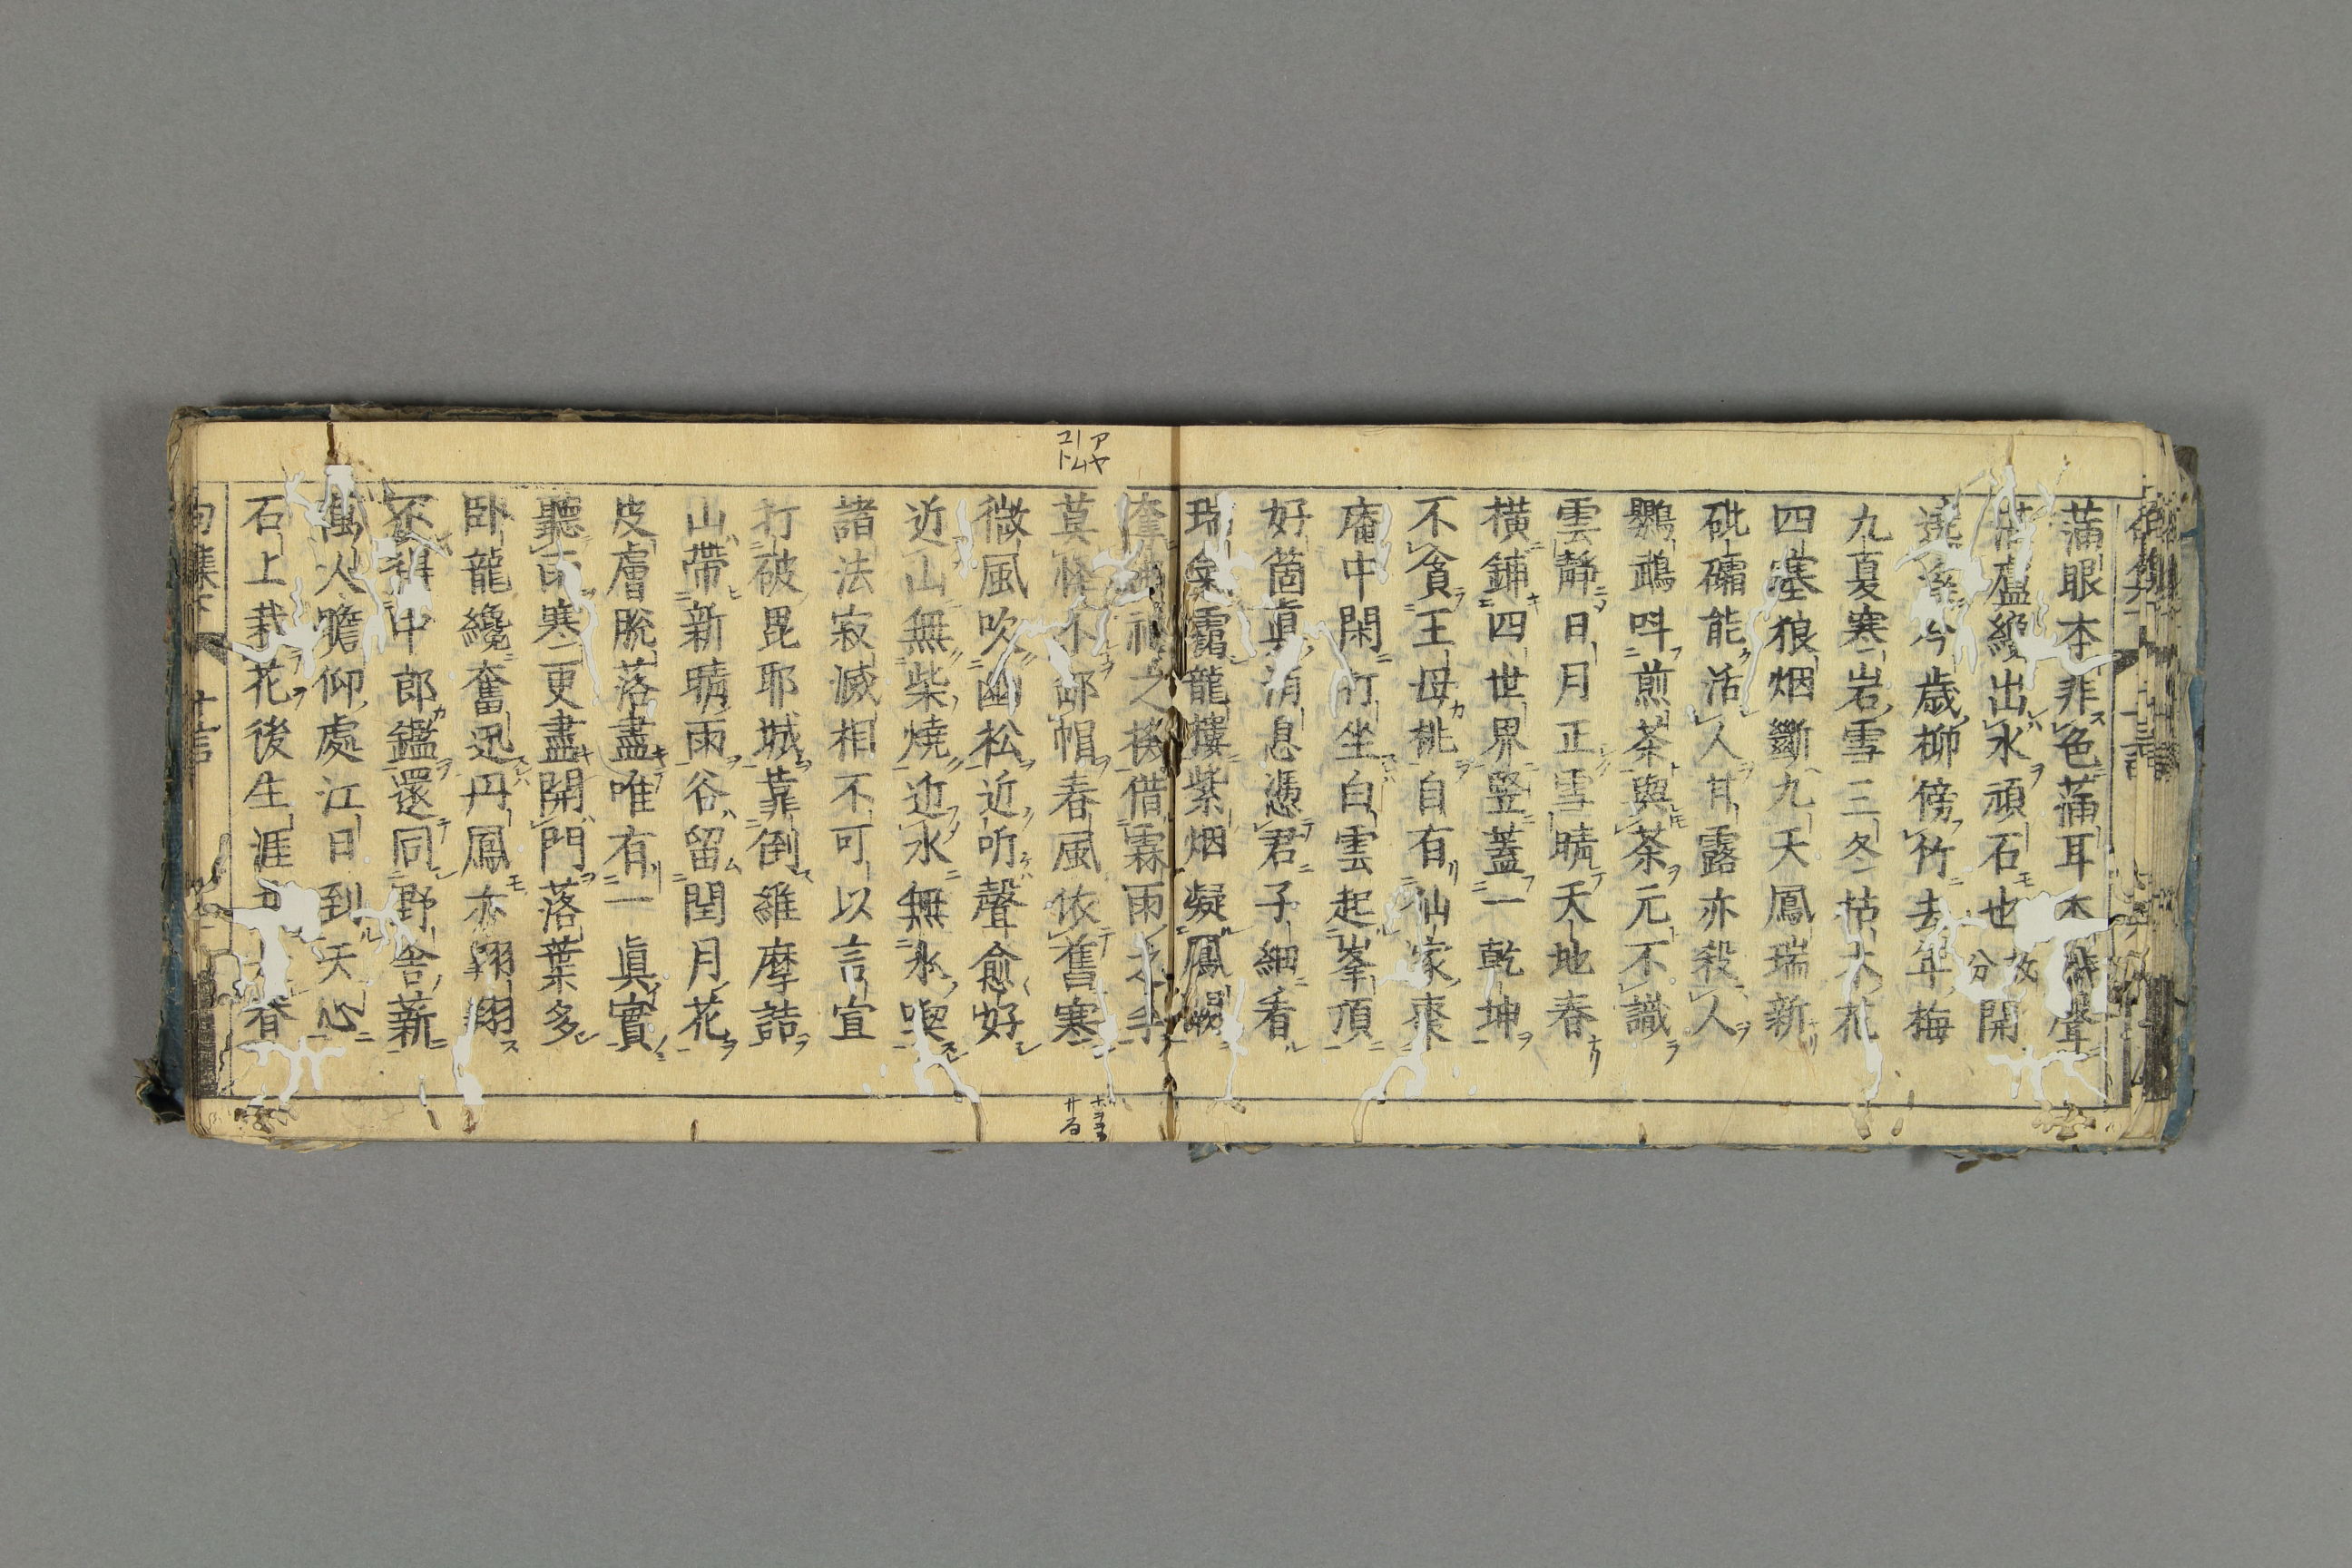 滿眼本非色滿耳本非聲
葫蘆纔出水頑石也 故分 開
今歳柳傍竹去年梅
九夏寒岩雪三冬枯木花
四塞狼烟斷九天鳳瑞新
砒礵能活人甘露亦殺人
鸚鵡叫煎茶與茶元不識
雲靜日月正雪晴天地春
橫鋪四世界竪蓋一乾坤
不貪王母桃自有仙家棗
庵中閑打坐白雲起峯頂
好箇眞消息憑君子細看
瑞氣靄龍樓紫烟凝鳳闕
之機借霖雨之手
莫怪不卸帽春風依舊寒
微風吹幽松近听聲愈好
近山無柴燒近水無水喫
諸法寂滅相不可以言宣
打破毘耶城靠倒維摩詰
山帶新晴雨谷留閏月花
皮膚脫落盡唯有一眞實
聽雨寒更盡開門落葉多
卧龍纔奮迅丹鳳亦翱翔
不積中郎鑑還同野舍薪
萬人瞻仰處江日到天心
石上栽花後生涯春
句集下
アヤ
ユトム